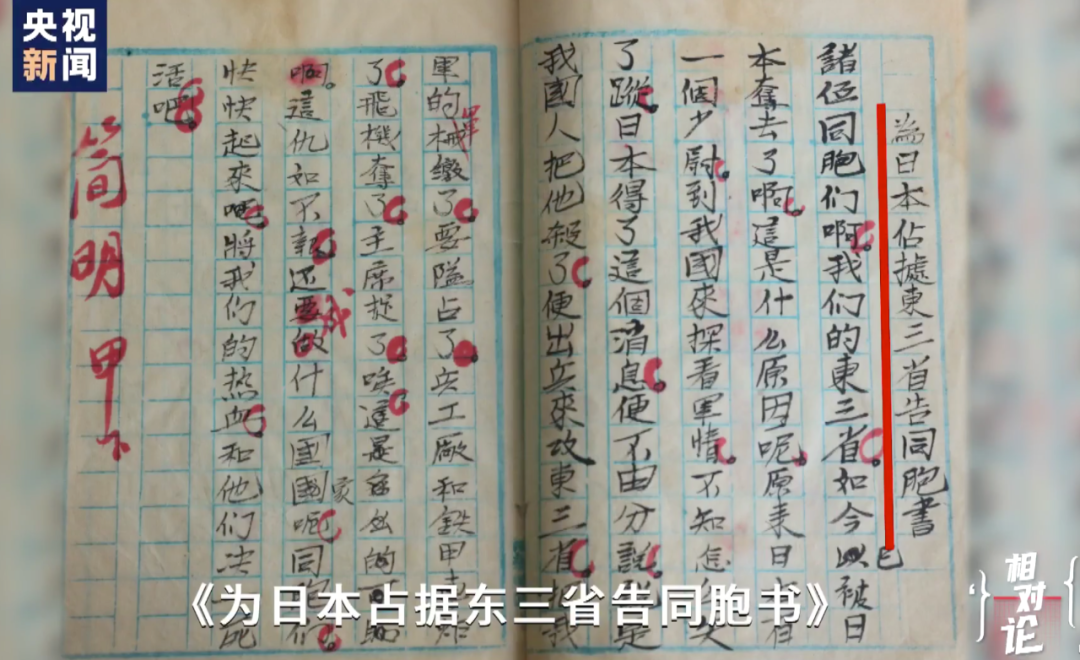 央视新闻
為日本佔據東三省告同胞書
諸位同胞们啊。我们的東三省。如今已被日
本奪去了啊。這是什么原因呢。原来日
一個少尉。到我國來探看軍情。不知怎
了蹤。日本得了這個消息。便不由分說。是
我國人把他殺了。便出兵來攻東三省。我
軍的械繳了。要隘占了。兵工廠和鉄甲
了。飛機奪了。主席捉了。唉。這是多么的可
啊。這仇如不報。还要做什么國國家呢。同胞们
快快起來吧。將我们的热血。和他们决死
活吧。
簡明 甲下
《为日本占据东三省告同胞书》
相对论